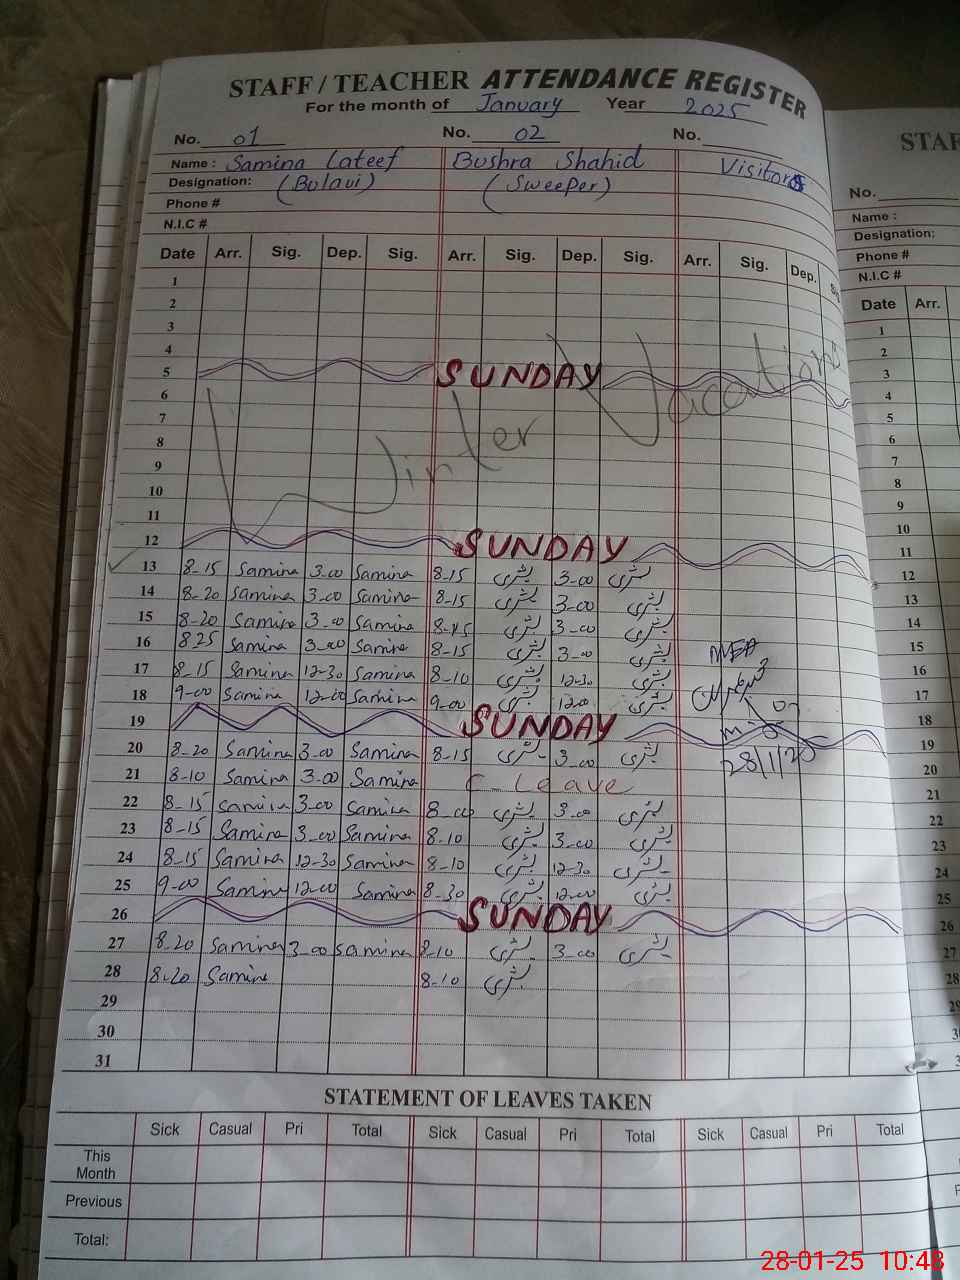 STAFF / TEACHER ATTENDANCE REGISTER
For the month of January Year 2025
No. 01 No. 02 No.
Name : Samina Lateef Bushra Shahid Visitors
Designation: (Bulavi) (Sweeper)
Phone #
N.I.C #
Date Arr. Sig. Dep. Sig. Arr. Sig. Dep. Sig. Arr. Sig. Dep.
1
2
3
4
5 SUNDAY
6
7
8
9
10
11
Winter Vacations
12 SUNDAY
13 8-15 Samina 3-00 Samina 8-15 بشری 3-00 بشری
14 8-20 Samina 3-00 Samina 8-15 بشری 3-00 بشری
15 8-20 Samina 3-00 Samina 8-45 بشری 3-00 بشری
16 8-25 Samina 3-00 Samina 8-15 بشری 3-00 بشری
17 8-15 Samina 12-30 Samina 8-10 بشری 12-30 بشری
18 9-00 Samina 12-00 Samina 9-00 بشری 12-00 بشری
19 SUNDAY
20 8-20 Samina 3-00 Samina 8-15 بشری 3-00 بشری
28/1/25
21 8-10 Samina 3-00 Samina C-Leave
22 8-15 Samina 3-00 Samina 8-00 بشری 3-00 بشری
23 8-15 Samina 3-00 Samina 8-10 بشری 3-00 بشری
24 8-15 Samina 12-30 Samina 8-10 بشری 12-30 بشری
25 9-00 Samina 12-00 Samina 8-30 بشری 12-00 بشری
26 SUNDAY
27 8-20 Samina 3-00 Samina 8-10 بشری 3-00 بشری
28 8-20 Samina 8-10 بشری
29
30
31
STATEMENT OF LEAVES TAKEN
Sick Casual Pri Total Sick Casual Pri Total Sick Casual Pri Total
This Month
Previous
Total:
STAF
No.
Name :
Designation:
Phone #
N.I.C #
Date Arr.
1
2
3
4
5
6
7
8
9
10
11
12
13
14
15
16
17
18
19
20
21
22
23
24
25
26
27
28
29
28-01-25 10:43